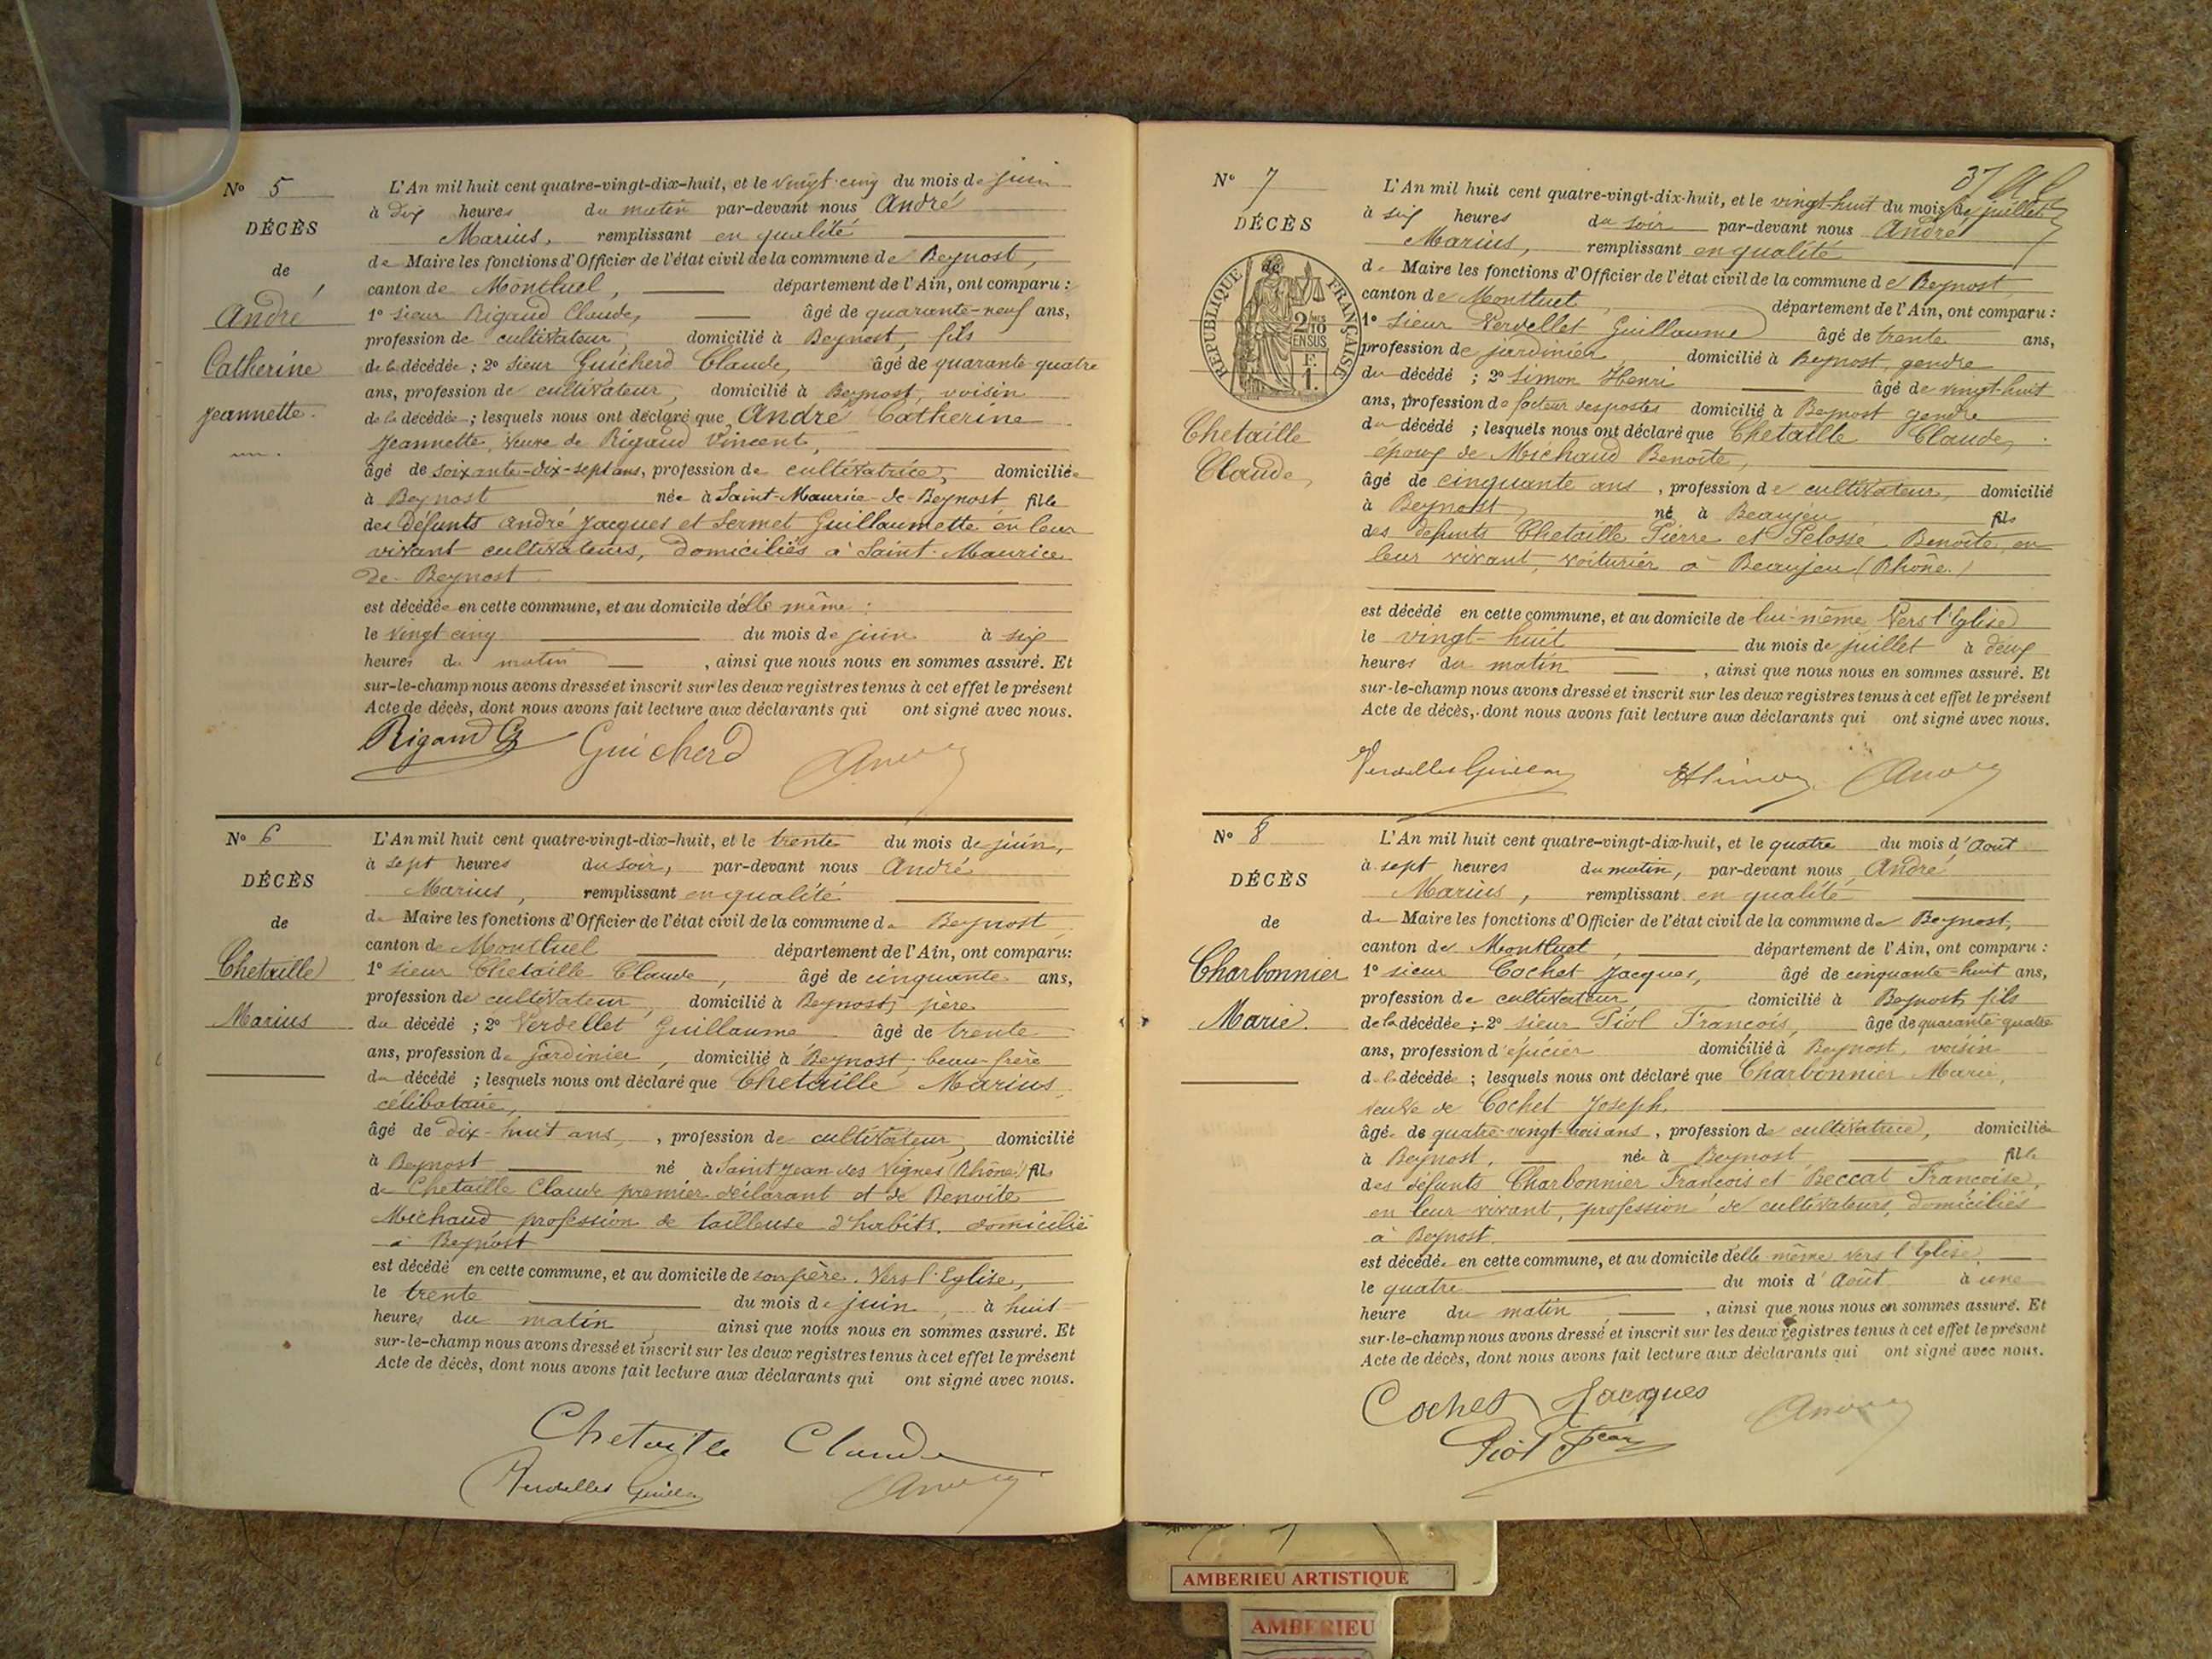 Nº 5
DÉCÈS
de
André
Catherine
Jeannette.
L'An mil huit cent quatre-vingt-dix-huit, et le vingt-cinq du mois de juin
à dix heures du matin par-devant nous André
Marius, remplissant en qualité
de Maire les fonctions d'Officier de l'état civil de la commune de Beynost,
canton de Montluel, département de l'Ain, ont comparu :
1º sieur Rigaud Claude, âgé de quarante-neuf ans,
profession de cultivateur, domicilié à Beynost, fils
de la décédée ; 2º sieur Guicherd Claude, âgé de quarante-quatre
ans, profession de cultivateur, domicilié à Beynost, voisin
de la décédée ; lesquels nous ont déclaré que André Catherine
Jeannette, veuve de Rigaud Vincent,
âgé de soixante-dix-sept ans, profession de cultivatrice, domiciliée
à Beynost née à Saint-Maurice-de-Beynost fille
des défunts André Jacques et Sermet Guillaumette en leur
vivant cultivateurs, domiciliés à Saint-Maurice
de-Beynost
est décédée en cette commune, et au domicile d'elle même :
le vingt cinq du mois de juin à six
heures du matin, ainsi que nous nous en sommes assuré. Et
sur-le-champ nous avons dressé et inscrit sur les deux registres tenus à cet effet le présent
Acte de décès, dont nous avons fait lecture aux déclarants qui ont signé avec nous.
Rigaud Guicherd
Nº 6
DÉCÈS
de
Chetaille
Marius
L'An mil huit cent quatre-vingt-dix-huit, et le trente du mois de juin,
à sept heures du soir, par-devant nous André
Marius, remplissant en qualité
de Maire les fonctions d'Officier de l'état civil de la commune de Beynost
canton de Montluel département de l'Ain, ont comparu:
1º sieur Chetaille Claude, âgé de cinquante ans,
profession de cultivateur, domicilié à Beynost, père
du décédé ; 2º Verdellet Guillaume âgé de trente
ans, profession de jardinier, domicilié à Beynost, beau-frère
du décédé ; lesquels nous ont déclaré que Chetaille Marius,
célibataire,
âgé de dix-huit ans, profession de cultivateur, domicilié
à Beynost né à Saint Jean des Vignes (Rhône) fils
de Chetaille Claude premier déclarant et de Benoîte
Michaud profession de tailleuse d'habits. domicilié
à Beynost
est décédé en cette commune, et au domicile de son père. Vers l'Eglise,
le trente du mois de juin, à huit
heures du matin ainsi que nous nous en sommes assuré. Et
sur-le-champ nous avons dressé et inscrit sur les deux registres tenus à cet effet le présent
Acte de décès, dont nous avons fait lecture aux déclarants qui ont signé avec nous.
Chetaille Claude
Nº 7
DÉCÈS
de
RÉPUBLIQUE FRANÇAISE
2/10 EN SUS
F. 1.
Chetaille
Claude,
L'An mil huit cent quatre-vingt-dix-huit, et le vingt-huit du mois de juillet
à six heures du soir par-devant nous André
Marius, remplissant en qualité
de Maire les fonctions d'Officier de l'état civil de la commune de Beynost
canton de Montluel département de l'Ain, ont comparu :
1º Sieur Verdellet Guillaume âgé de trente ans,
profession de jardinier, domicilié à Beynost, gendre
du décédé ; 2º Simon Henri âgé de vingt-huit
ans, profession de facteur des postes domicilié à Beynost gendre
du décédé ; lesquels nous ont déclaré que Chetaille Claude,
époux de Michaud Benoîte,
âgé de cinquante ans, profession de cultivateur, domicilié
à Beynost, né à Beaujeu fils
des défunts Chetaille Pierre et Pelosse Benoîte, en
leur vivant, voiturier à Beaujeu (Rhône.)
est décédé en cette commune, et au domicile de lui-même Vers l'Eglise
le vingt-huit du mois de juillet à deux
heures du matin, ainsi que nous nous en sommes assuré. Et
sur-le-champ nous avons dressé et inscrit sur les deux registres tenus à cet effet le présent
Acte de décès, dont nous avons fait lecture aux déclarants qui ont signé avec nous.
Nº 8
DÉCÈS
de
Charbonnier
Marie.
L'An mil huit cent quatre-vingt-dix-huit, et le quatre du mois d'Août
à sept heures du matin, par-devant nous André
Marius, remplissant en qualité
de Maire les fonctions d'Officier de l'état civil de la commune de Beynost,
canton de Montluel, département de l'Ain, ont comparu :
1º sieur Cochet Jacques, âgé de cinquante-huit ans,
profession de cultivateur domicilié à Beynost, fils
de la décédée ; 2º sieur Piol François, âgé de quarante-quatre
ans, profession d'épicier domicilié à Beynost, voisin
de la décédée ; lesquels nous ont déclaré que Charbonnier Marie,
veuve de Cochet Joseph,
âgée de quatre-vingt-trois ans, profession de cultivatrice, domiciliée
à Beynost, née à Beynost fille
des défunts Charbonnier François et Beccat Françoise,
en leur vivant, profession de cultivateurs, domiciliés
à Beynost.
est décédée en cette commune, et au domicile d'elle même vers l'Eglise.
le quatre du mois d'Août à une
heure du matin, ainsi que nous nous en sommes assuré. Et
sur-le-champ nous avons dressé et inscrit sur les deux registres tenus à cet effet le présent
Acte de décès, dont nous avons fait lecture aux déclarants qui ont signé avec nous.
Cochet Jacques
Piol Fcois
AMBERIEU ARTISTIQUE
AMBERIEU